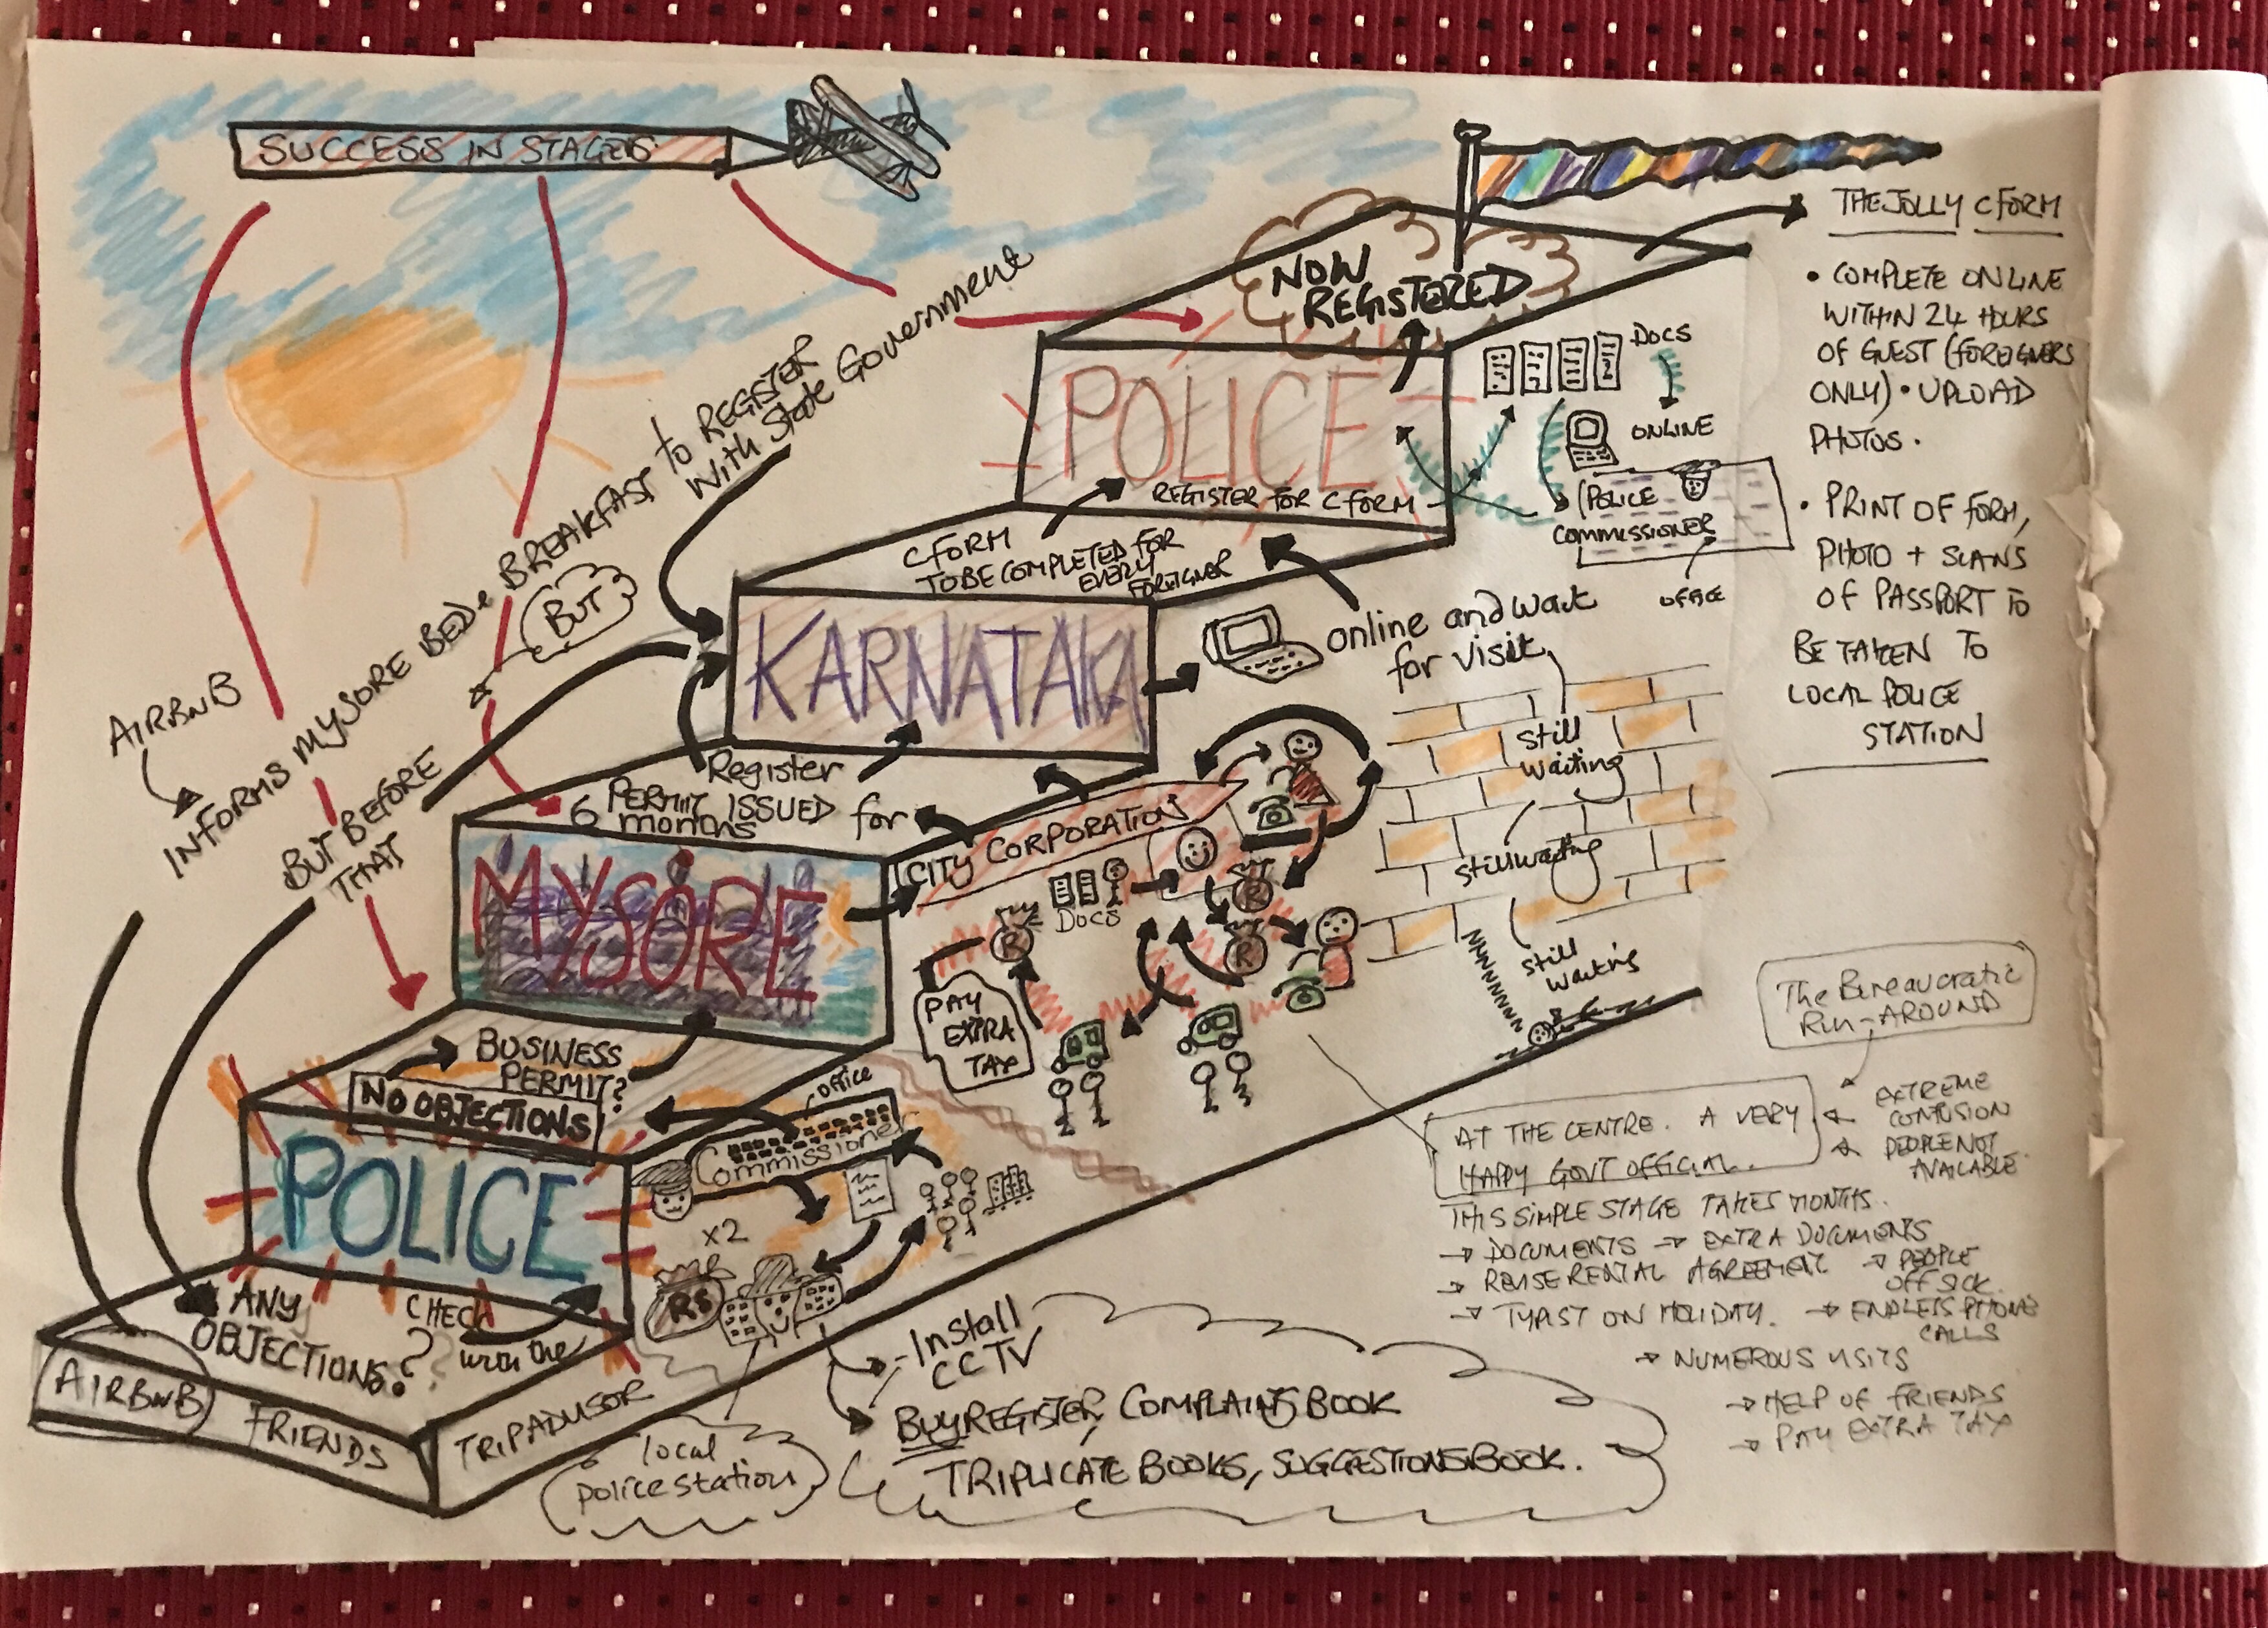 SUCCESS IN STAGES
AIRBNB
INFORMS MYSORE BED & BREAKFAST TO REGISTER
with State Government
BUT
BUT BEFORE
THAT
NOW
REGISTERED
POLICE
REGISTER FOR C FORM
DOCS
ONLINE
POLICE
COMMISSIONER
OFFICE
C FORM
TO BE COMPLETED FOR
EVERY
FOREIGNER
KARNATAKA
online and wait
for visit
still
waiting
still waiting
still
waiting
Register
6 PERMIT ISSUED for
months
MYSORE
CITY CORPORATION
DOCS
R
R
R
PAY
EXTRA
TAX
BUSINESS
PERMIT?
NO OBJECTIONS
POLICE
OFFICE
Commissioner
x2
RS
ANY
OBJECTIONS?
CHECK
with the
AIRBNB
FRIENDS
TRIPADVISOR
local
police station
- Install
CCTV
BUY REGISTER, COMPLAINTS BOOK
TRIPLICATE BOOKS, SUGGESTIONS BOOK.
THE JOLLY C FORM
• COMPLETE ONLINE
WITHIN 24 HOURS
OF GUEST (FOREIGNERS
ONLY) • UPLOAD
PHOTOS.
• PRINT OF FORM,
PHOTO + SCANS
OF PASSPORT TO
BE TAKEN TO
LOCAL POLICE
STATION
The Bureaucratic
RUN-AROUND
EXTREME
CONFUSION
PEOPLE NOT
AVAILABLE
AT THE CENTRE. A VERY
HAPPY GOVT OFFICIAL.
THIS SIMPLE STAGE TAKES MONTHS.
→ DOCUMENTS → EXTRA DOCUMENTS
→ REVISE RENTAL AGREEMENT → PEOPLE
OFF SICK
→ TYPIST ON HOLIDAY. → ENDLESS PHONE
CALLS
→ NUMEROUS VISITS
→ HELP OF FRIENDS
→ PAY EXTRA TAX